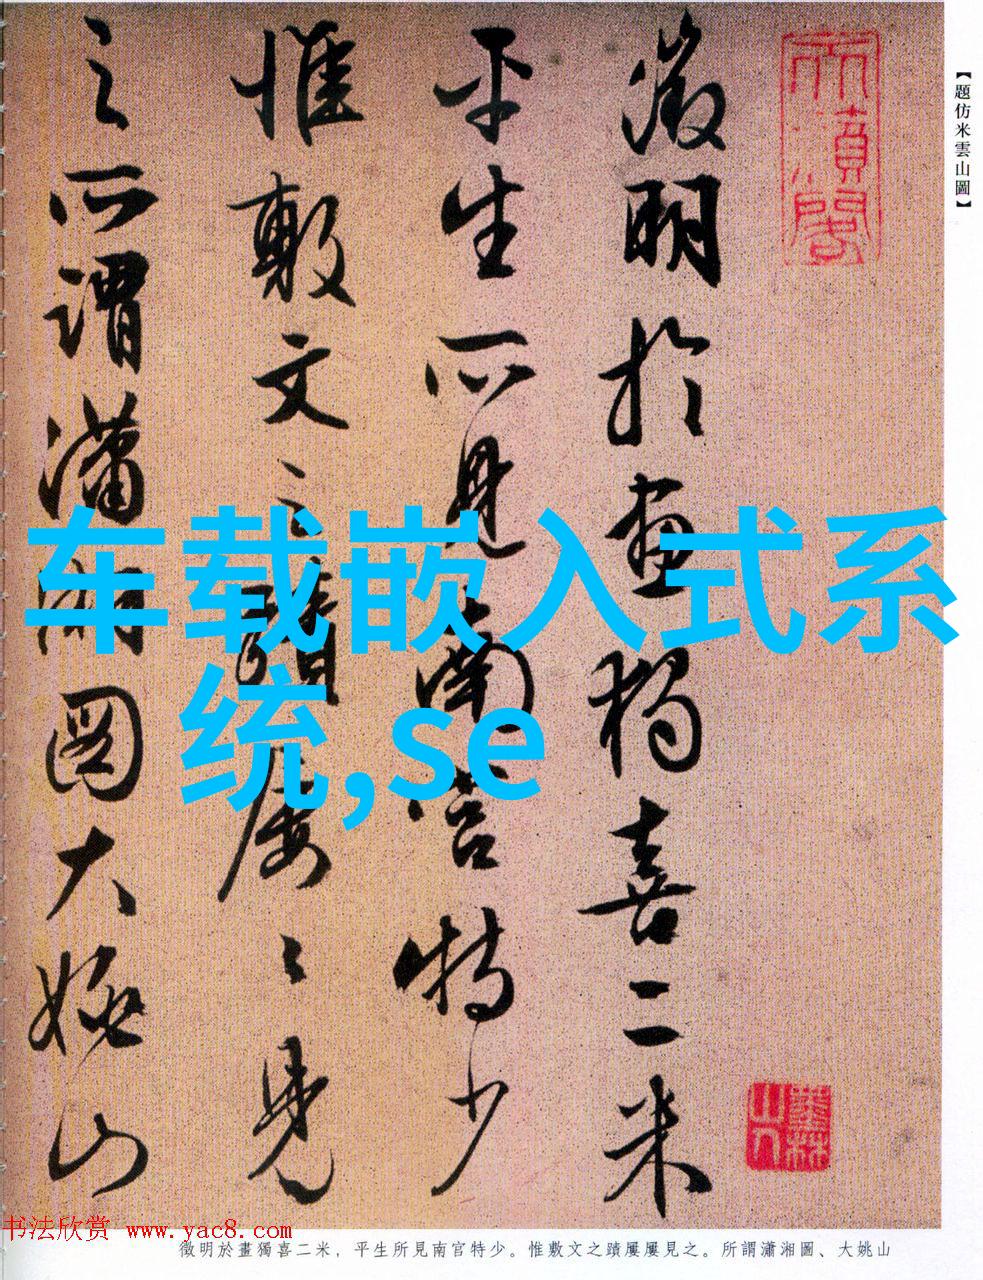 【題仿米雲山圖】
徵明於畫獨喜二米
平生所見南宫特少
惟敷文之蹟屢〻見
之所謂瀟湘圖大姚山
墨林山人
车载嵌入式系
统,se
书法欣赏 www.yac8.com
徵明於畫獨喜二米，平生所見南宫特少。惟敷文之蹟屢屢見之。所謂瀟湘圖、大姚山